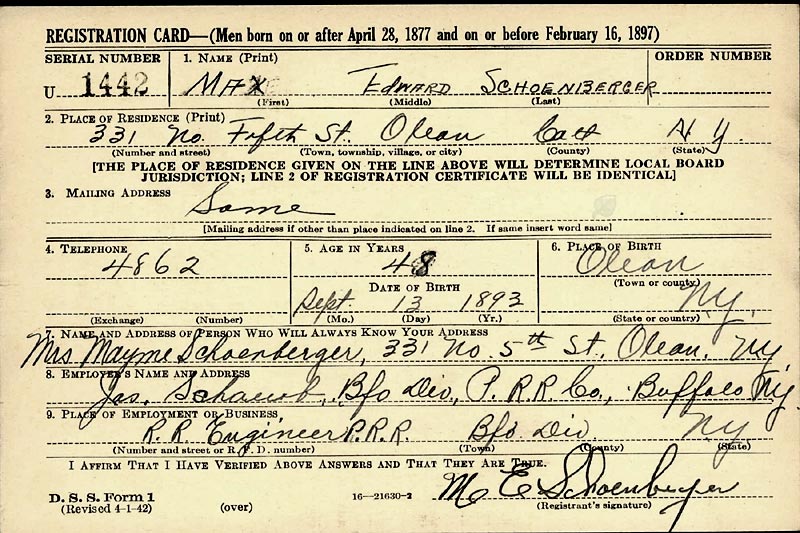 REGISTRATION CARD—(Men born on or after April 28, 1877 and on or before February 16, 1897)
SERIAL NUMBER 1. NAME (Print) ORDER NUMBER
U 1442 MAX EDWARD SCHOENBERGER
(First) (Middle) (Last)
2. PLACE OF RESIDENCE (Print)
331 No. Fifth St. Olean Catt N.Y.
(Number and street) (Town, township, village, or city) (County) (State)
[THE PLACE OF RESIDENCE GIVEN ON THE LINE ABOVE WILL DETERMINE LOCAL BOARD
JURISDICTION; LINE 2 OF REGISTRATION CERTIFICATE WILL BE IDENTICAL]
3. MAILING ADDRESS
Same
[Mailing address if other than place indicated on line 2. If same insert word same]
4. TELEPHONE 5. AGE IN YEARS 6. PLACE OF BIRTH
4862 48 Olean
DATE OF BIRTH (Town or county)
Sept. 13 1893 N.Y.
(Exchange) (Number) (Mo.) (Day) (Yr.) (State or country)
7. NAME AND ADDRESS OF PERSON WHO WILL ALWAYS KNOW YOUR ADDRESS
Mrs. Mayme Schoenberger, 331 No. 5th St., Olean, Ny
8. EMPLOYER'S NAME AND ADDRESS
Jas. Bfo Div., P.R.R. Co., Buffalo Ny.
9. PLACE OF EMPLOYMENT OR BUSINESS
R.R. Engineer P.R.R. Bfo Div Ny
(Number and street or R. F. D. number) (Town) (County) (State)
I AFFIRM THAT I HAVE VERIFIED ABOVE ANSWERS AND THAT THEY ARE TRUE.
D. S. S. Form 1
(Revised 4-1-42) (over) 16—21630-2 M E Schoenberger
(Registrant's signature)